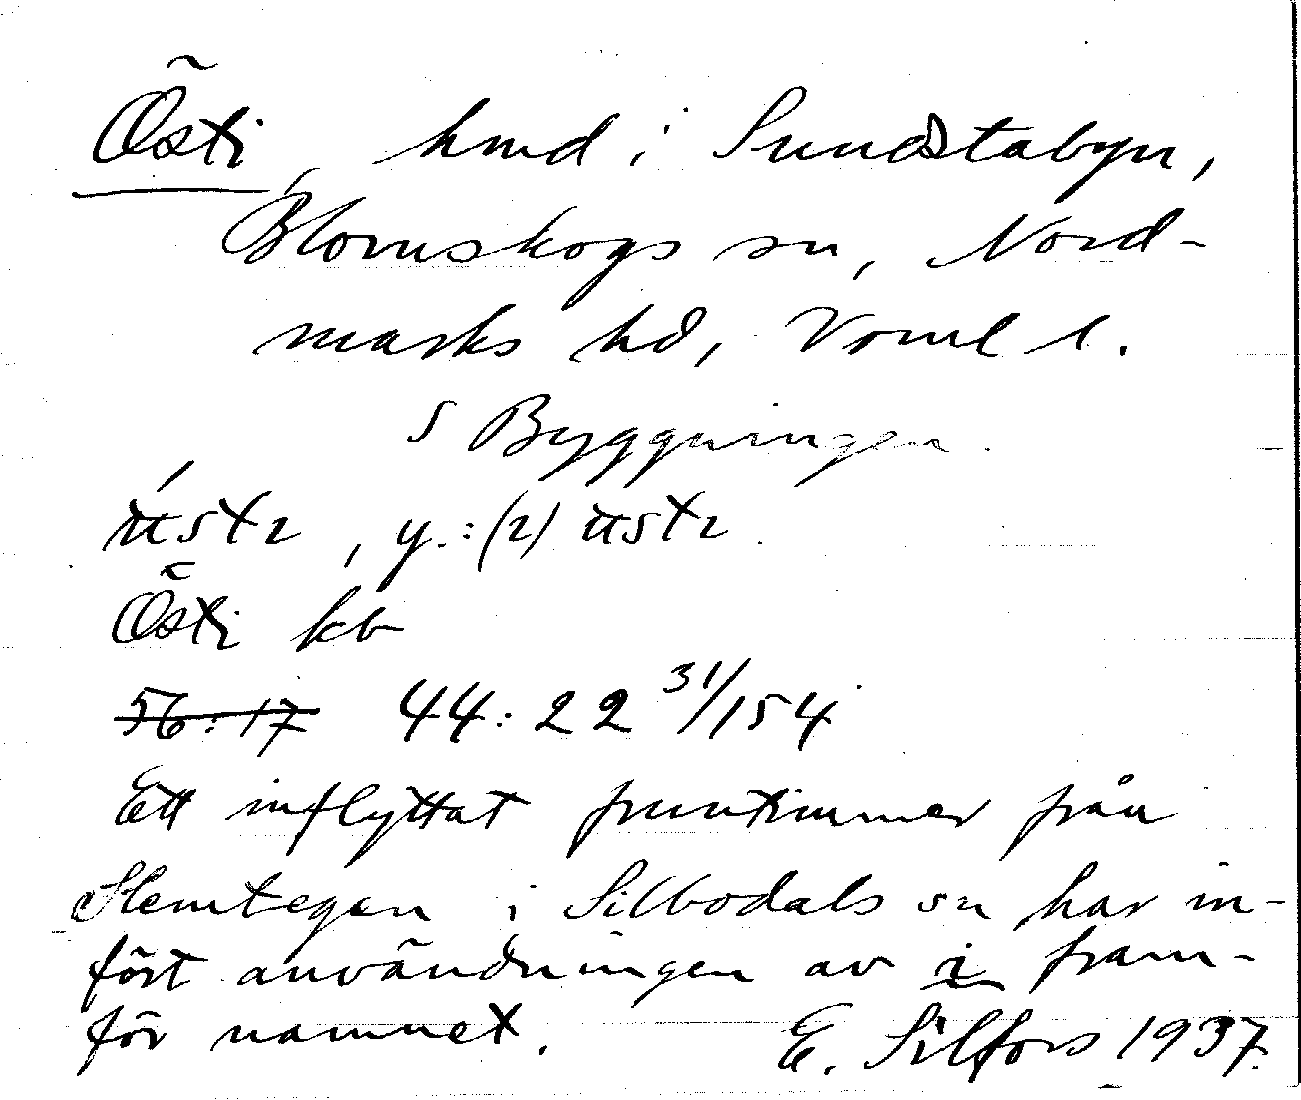 Östi, hmd i Sundstabyn,
Blomskogs sn, Nord-
marks hd, Värml l.
S Byggningen.
, y.: (2)
Östi kb
56:17 44:22 31/154
Ett inflyttat fruntimmer från
Slemtegen i Silbodals sn har in-
fört användningen av i fram-
för namnet. E. Silfors 1937.